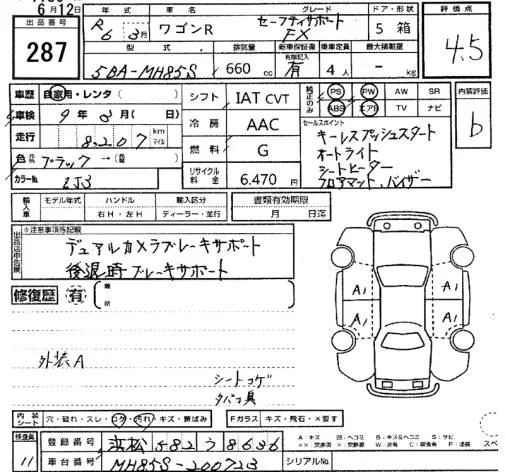 6月12日
出品番号 287
年式 R6 3月 車名 ワゴンR グレード セーフティサポート FX ドア・形状 5 箱 評価点 4.5
型式 5BA-MH85S 排気量 660 cc 新車保証書 有無記入 有 乗車定員 4人 最大積載量 - kg
車歴 自家用・レンタ( ) シフト IAT CVT 純正のみ PS PW AW SR 内装評価 b
車検 9年3月( 日) 冷房 AAC ABS エアB TV ナビ
走行 8,207 km マイル 燃料 G
セールスポイント
キーレスプッシュスタート
オートライト
シートヒーター
フロアマット、バイザー
色 ブラック→( )
カラーNo. ZJ3 リサイクル料金 6,470円
輸入車 モデル年式 ハンドル 右H・左H 輸入区分 ディーラー・並行 書類有効期限 月 日迄
出品店申告欄 ※注意事項等記載
デュアルカメラブレーキサポート
後退時ブレーキサポート
修復歴 有 箇所
A1 A1
A1 A1
外装A
シートコゲ
タバコ臭
内装シート 穴・破れ・スレ・コゲ・汚れ・キズ・黄ばみ Fガラス キズ・飛石・×要す
検査員 11 登録番号 浜松 582 う 8636
車台番号 MH85S-200723 シリアルNo.
A:キズ